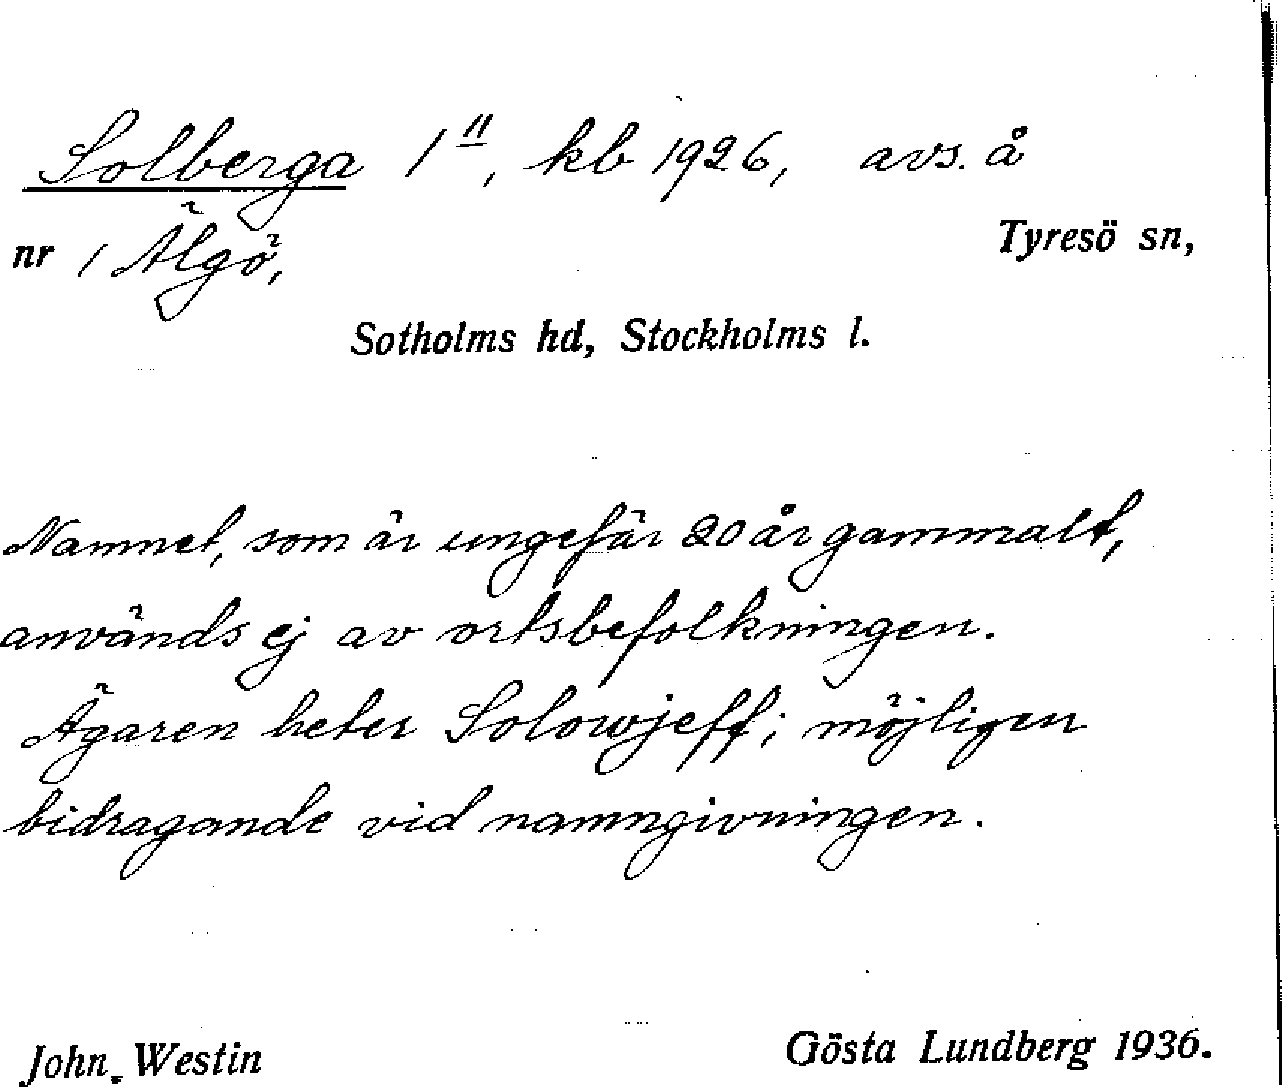 Solberga 1 11, kb 1926, avs. å
nr 1 Älgö, Tyresö sn,
Sotholms hd, Stockholms l.
Namnet, som är ungefär 20 år gammalt,
används ej av ortsbefolkningen.
Ägaren heter Solowjeff; möjligen
bidragande vid namngivningen.
John. Westin Gösta Lundberg 1936.